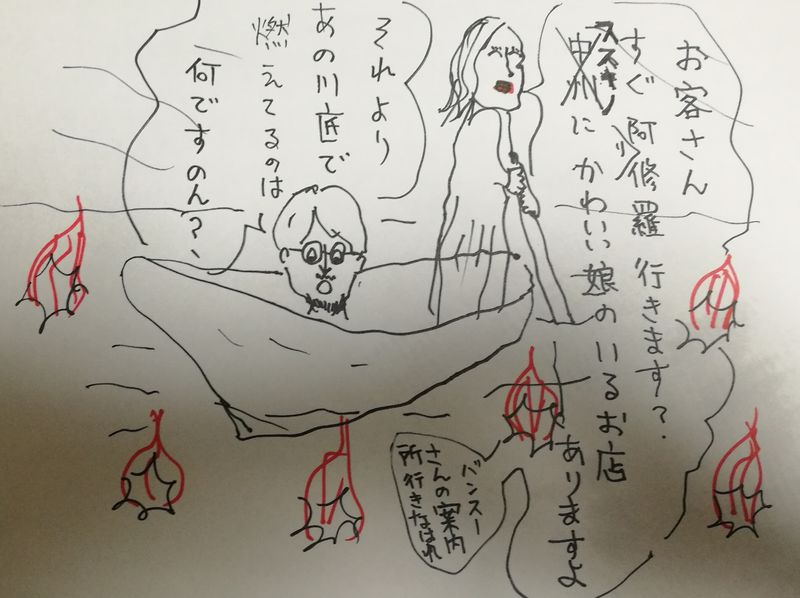 お客さん
すぐ阿修羅行きます?
ススキノにかわいい娘のいるお店
ありますよ
それより
あの川底で
燃えてるのは
何ですのん?
バンスー
さんの案内
所行きなはれ